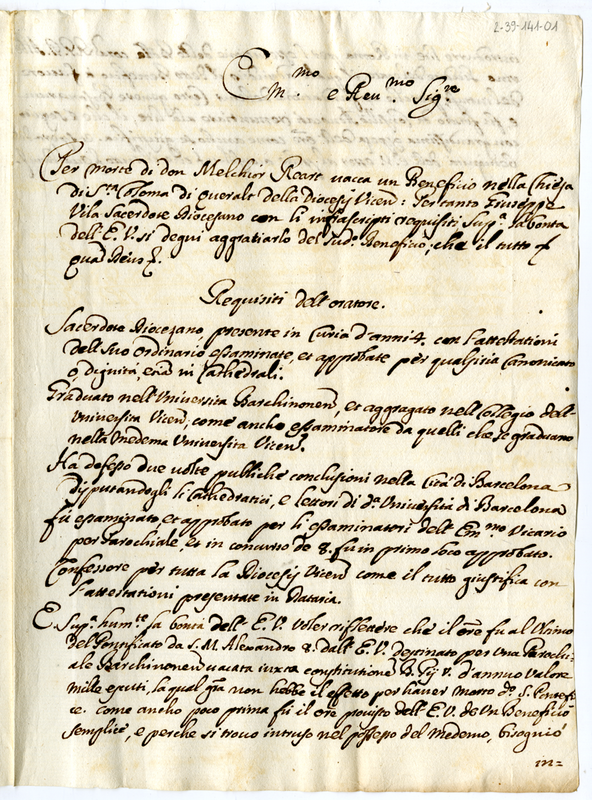 2-39-141-01
Em.mo e Rev.mo Sig.re
Per morte di don Melchior Reart vacca un Beneficio nella Chiesa
di S.ta Coloma di Queralt della Diocesij Vicen: Pertanto Giuseppe
Vila Sacerdote Diocesano con li infrascripti requisiti, Sup.a la bontà
dell'E.V. si degni aggratiarlo del sud.o Beneficio; che il tutto
quam Deus
Requisiti dell'oratore.
Sacerdote Diocezano presente in Curia d'anni 4. con l'attestationi
dell Suo ordinario essaminate, et approbate per qualsisia Canonicato
ò, dignità, etia in Cathedrali.
Graduato nell'Universita Barchinonen, et aggragato nell Collegio dell'
Universita Vicen; come anche essaminatore da quelli che se graduano
nella medema Universita Vicen.
Ha defeso due volte publiche conclusioni nella Cità di Barcelona
disputandogli li Cathedratici, e lettori di d.a Università di Barcelona
fù essaminato, et approbato per li essaminatori dell Em.mo Vicario
per Parochiale, et in concurso de 8. fu in primo loco approbato.
Confessore per tutta la Diocesij Vicen come il tutto giustifica con
l'attestationi presentate in Dataria.
E Sup.a hum.te la bontà dell'E.V. voler riflettere che il ore fu al Ultimo
del Pontificato da S.M. Alexandro 8. dall'E.V. destinato per una Parochi-
ale Barchinonen vacata iuxta constitutione B. Pij V. d'annuo valore
mille scuti, la qual gra non hebbe il effetto per haver morto d.o S. Pontefi-
ce. come anche poco prima fù il ore provisto dell'E.V. de un Beneficio
semplice, e perche si trovo intruso nel possesso del medemo, bisognio
in=